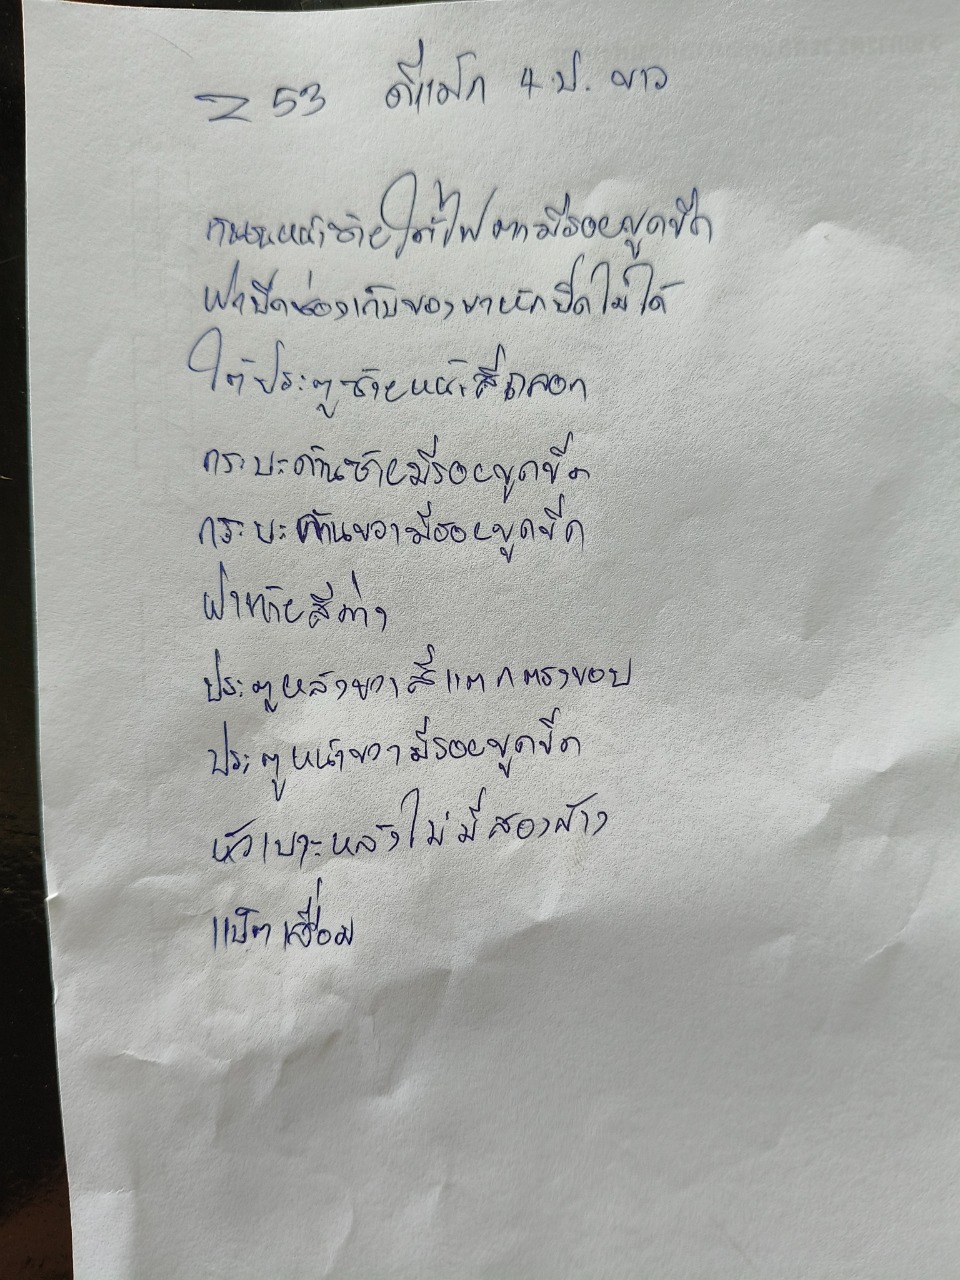 Z 53 ดีแม็ก 4 ป. ขาว
กันชนหน้าซ้ายใต้ไฟตามีรอยขูดขีด
ฝาปิดช่องเก็บของขาหักปิดไม่ได้
ใต้ประตูซ้ายหน้าสีถลอก
กระบะด้านซ้ายมีรอยขูดขีด
กระบะด้านขวามีรอยขูดขีด
ฝาท้ายสีด่าง
ประตูหลังขวาสีแตกตรงขอบ
ประตูหน้าขวามีรอยขูดขีด
หัวเบาะหลังไม่มีสองข้าง
แบ็ตเสื่อม